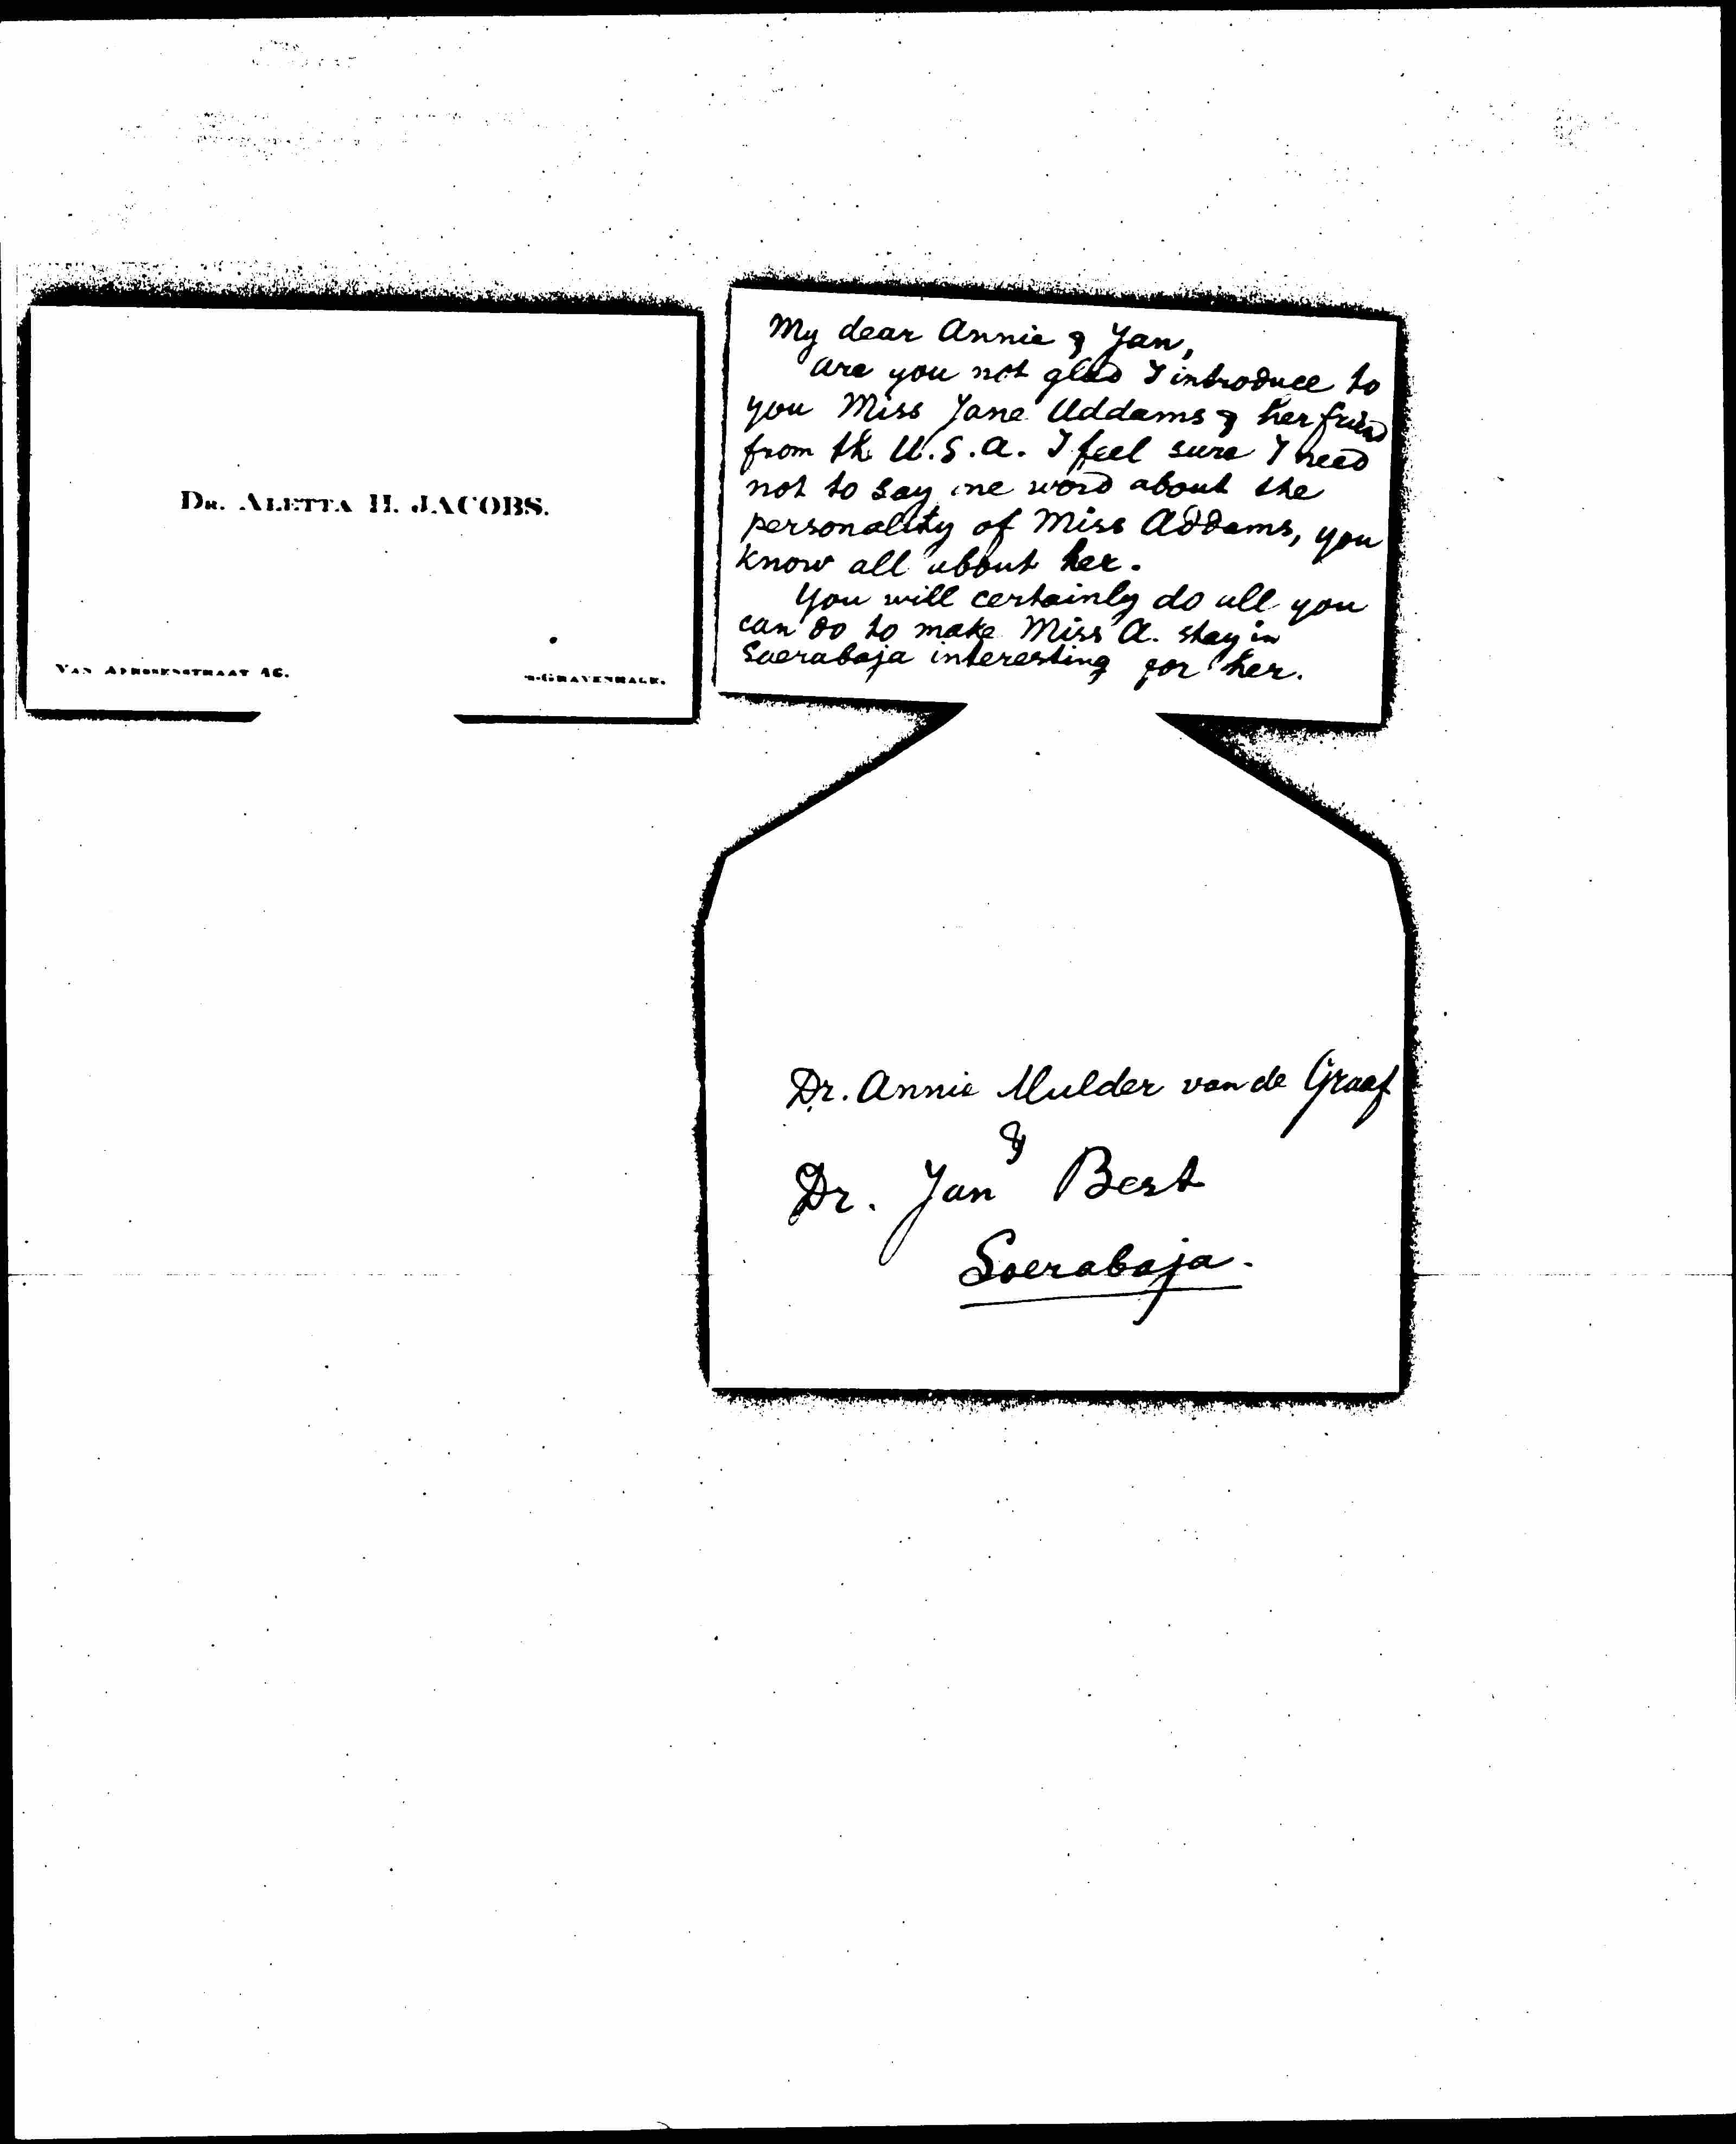 Dr. Aletta H. JACOBS.
Van Aerssenstraat 46.
's-Gravenhage.
My dear Annie & Jan,
Are you not glad I introduce to
you Miss Jane Addams & her friend
from the U.S.A. I feel sure I need
not to say one word about the
personality of Miss Addams, you
know all about her.
You will certainly do all you
can do to make Miss A. stay in
Soerabaja interesting for her.
Dr. Annie Mulder van de Graaf
&
Dr. Jan Best
Soerabaja.